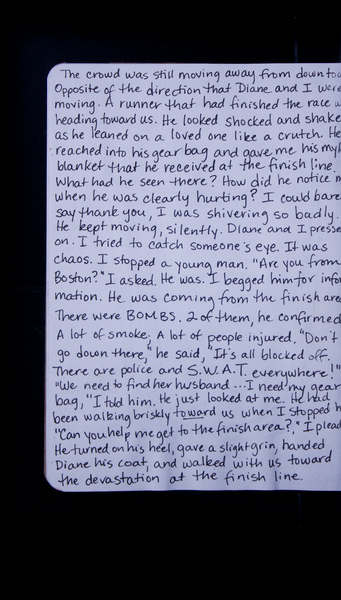 The crowd was still moving away from downtow
Opposite of the direction that Diane and I were
moving. A runner that had finished the race w
heading toward us. He looked shocked and shake
as he leaned on a loved one like a crutch. He
reached into his gear bag and gave me his myl
blanket that he received at the finish line.
What had he seen there? How did he notice m
when he was clearly hurting? I could bare
say thank you, I was shivering so badly.
He kept moving, silently. Diane and I presse
on. I tried to catch someone's eye. It was
chaos. I stopped a young man. "Are you from
Boston?" I asked. He was. I begged him for infor
mation. He was coming from the finish area
There were BOMBS. 2 of them, he confirmed
A lot of smoke; A lot of people injured. "Don't
go down there," he said, "It's all blocked off.
There are police and S.W.A.T. everywhere!"
"We need to find her husband ... I need my gear
bag," I told him. He just looked at me. He had
been walking briskly toward us when I stopped h
"Can you help me get to the finish area?." I plead
He turned on his heel, gave a slight grin, handed
Diane his coat, and walked with us toward
the devastation at the finish line.